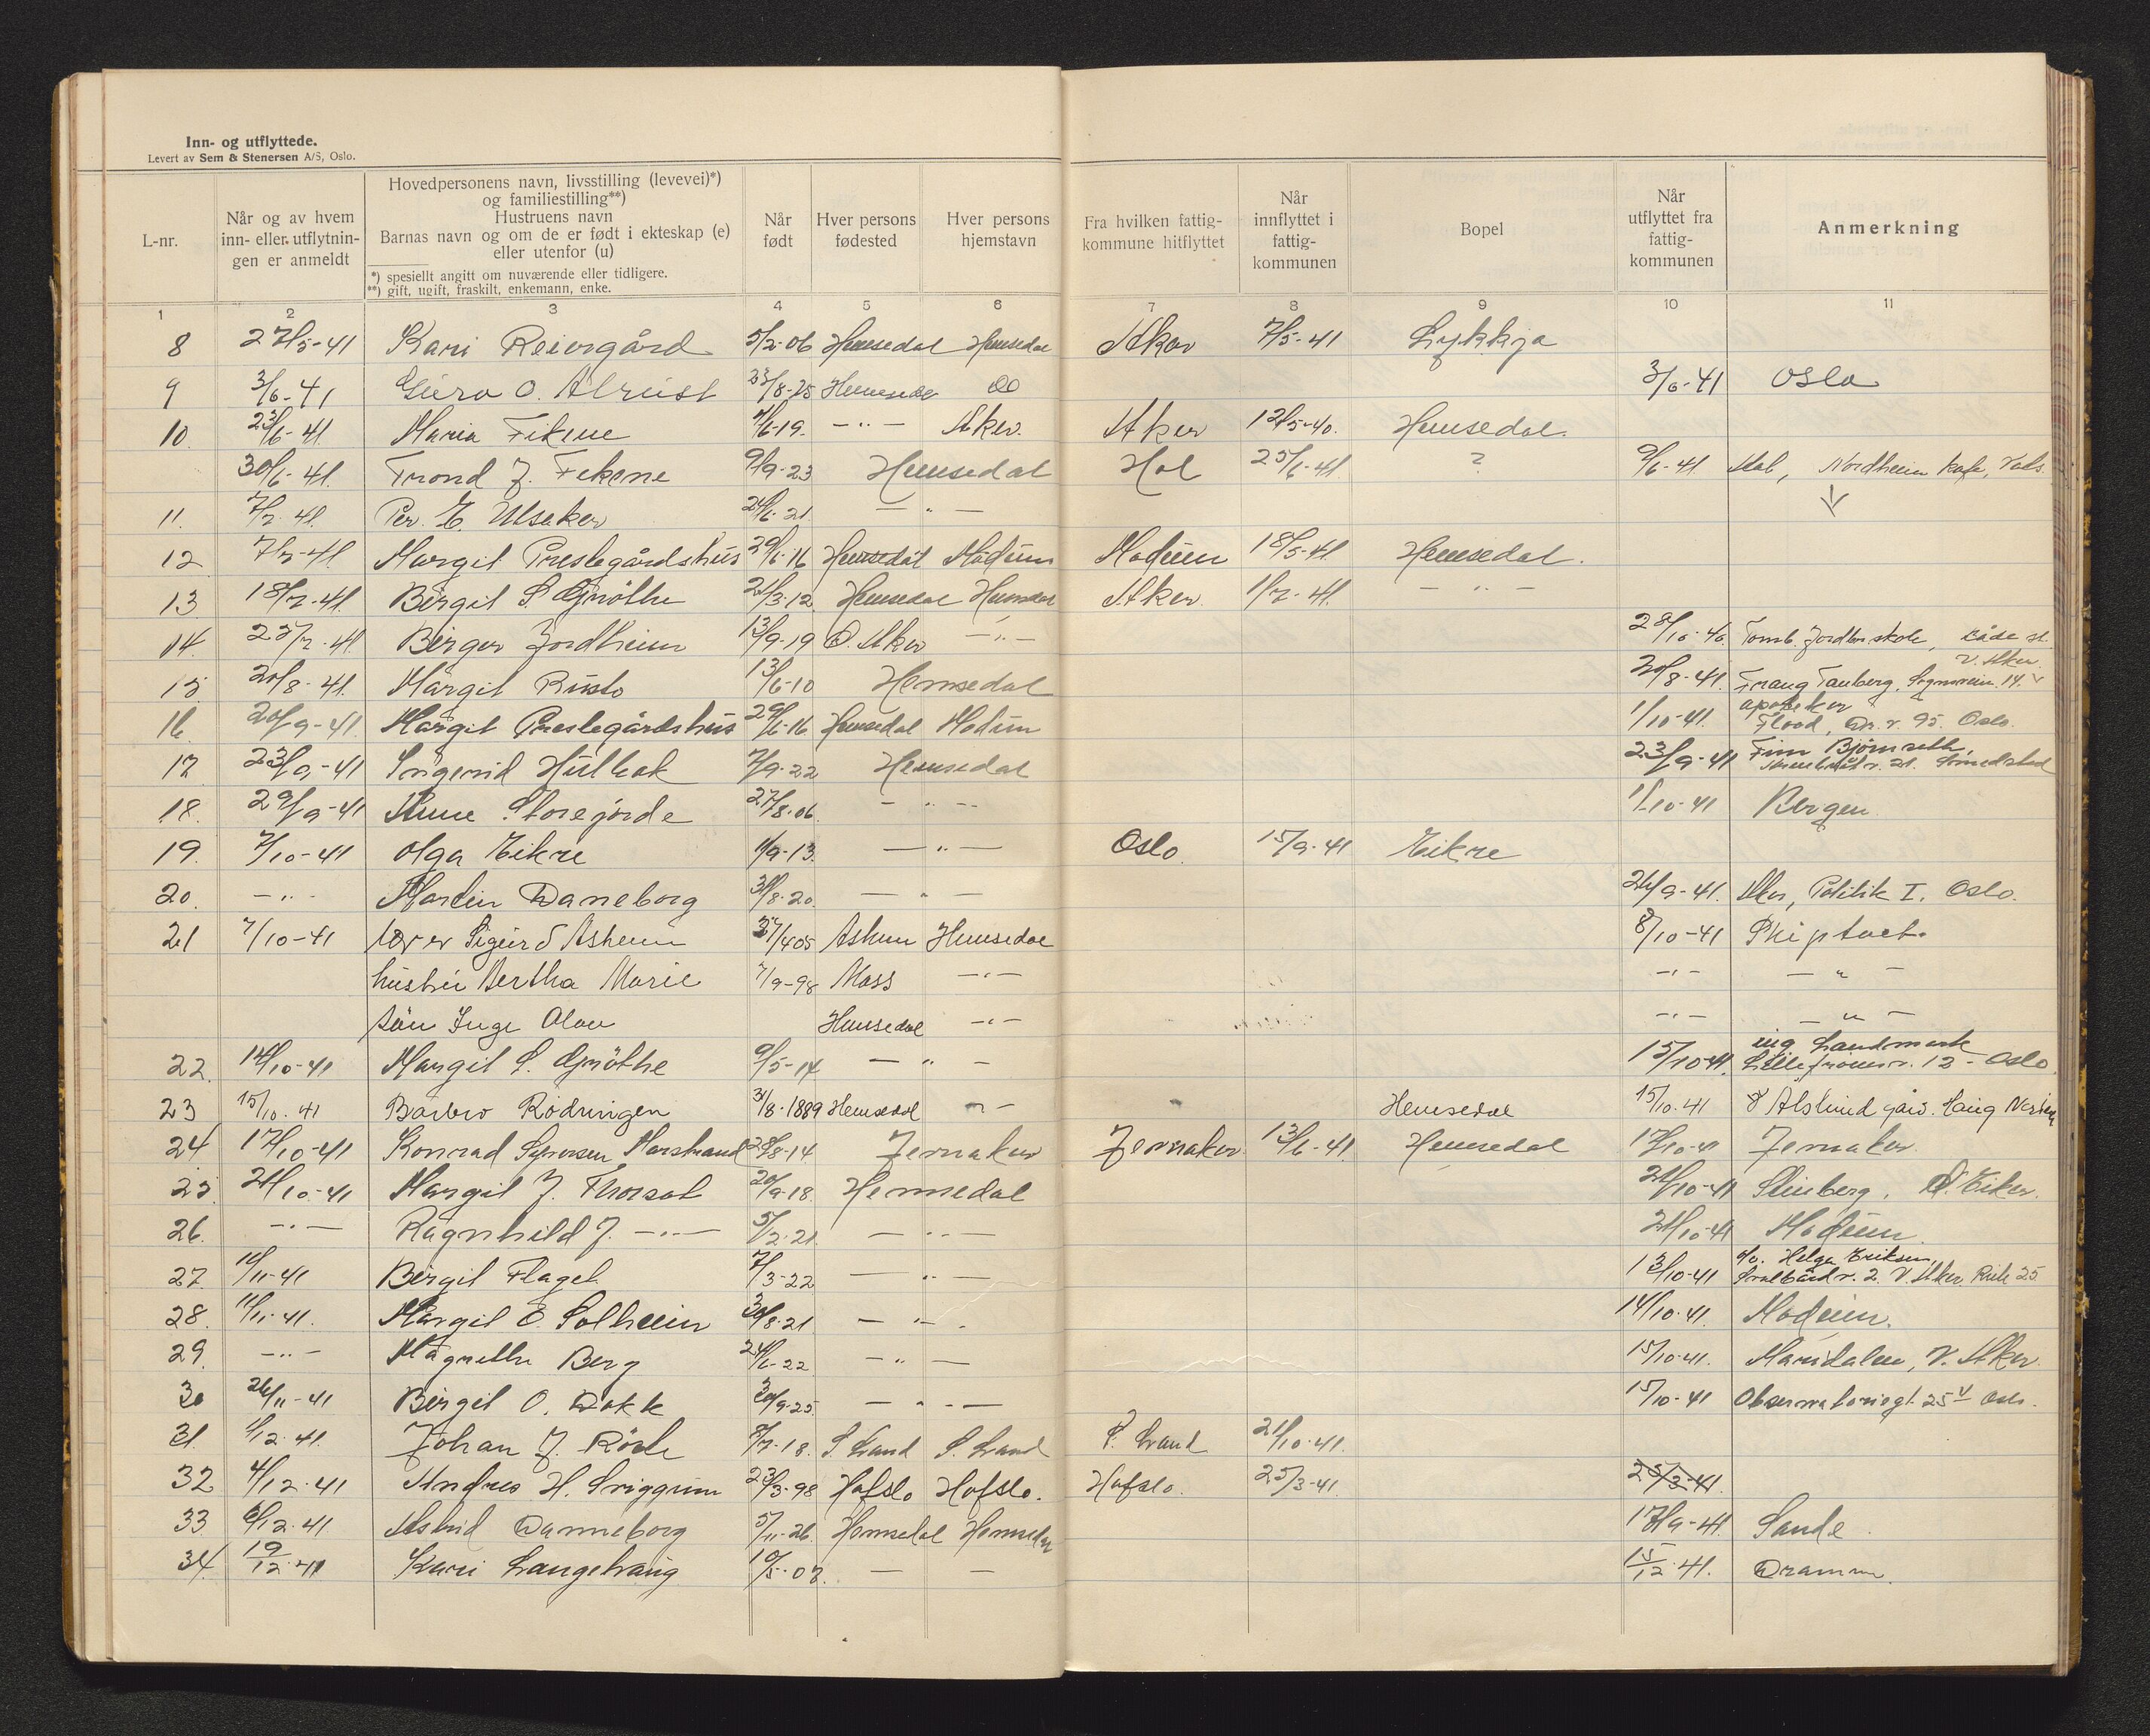 Inn- og utflyttede.
Levert av Sem & Stenersen A/S, Oslo.
L-nr.
Når og av hvem inn- eller utflytnin-gen er anmeldt
Hovedpersonens navn, livsstilling (levevei)*)
og familiestilling**)
Hustruens navn
Barnas navn og om de er født i ekteskap (e)
eller utenfor (u)
*) spesiellt angitt om nuværende eller tidligere.
**) gift, ugift, fraskilt, enkemann, enke.
Når født
Hver persons fødested
Hver persons hjemstavn
Fra hvilken fattig-kommune hitflyttet
Når innflyttet i fattig-kommunen
Bopel
Når utflyttet fra fattig-kommunen
Anmerkning
1 2 3 4 5 6 7 8 9 10 11
8 27/5-41 Kari Reiergård 5/2-06 Hemsedal Hemsedal Aker 7/5-41 Lykkja
9 3/6-41 Guro O. Alrust 23/8-25 Hemsedal Do 3/6-41 Oslo
10. 23/6-41 Maria Fekene 4/6-19. -"- Aker. Aker 12/5-40. Hemsedal.
30/6-41. Trond J. Fekene 9/9-23 Hemsedal Hol 25/6-41 ? 9/6-41 Aal, Nordheim kafe,
11. 7/7-41. Per. E. Ulsaker 24/6-21 -"-
12 7/7-41 Margit Prestegårdshus 29/6-16 Hemsedal Modum Modum 18/5-41 Hemsedal.
13 18/7-41. Birgit S. Grøthe 21/3-12 Hemsedal Hemsedal Aker. 1/7-41. -"-
14. 25/7-41 Birger Jordheim 13/9-19 Ø. Aker -"- 28/10-40. Tomb. Jordbr skole, Råde st.
15 20/8-41. Margit Rusto 13/6-10 Hemsedal 20/8-41. Tauberg, 14. V. Aker.
16. 20/9-41. Margit Prestegårdshus 29/6-16 Hemsedal Modum 1/10-41. apoteker Flood, Dr. v. 95. Oslo.
17 23/9-41 Ingerid Hulbak 7/9-22 Hemsedal 23/9-41 Finn Bjørnseth, 21. Smedstad
18. 29/9-41 Anne Storejorde 27/8-06. -"- 1/10-41 Bergen
19. 7/10-41 Olga Eikre 1/9-13. -"- Oslo. 15/9-41 Eikre
20. -"- Martin Daneborg 31/8-20. -"- 24/9-41. Aker, Politik I. Oslo.
21 7/10-41 lærer Sigurd Askeim 27/4 05 Askim Hemsedal 8/10-41 Skiptvet.
hustru Bertha Marie 7/9-98 Moss -"- -"- -"-
søn Inge Olav Hemsedal -"- -"- -"-
22. 14/10-41 Margit S. Grøthe 9/5-14 -"- 15/10-41. ing Landmark Lillefrøens v. 12 - Oslo.
23 15/10.41 Barbro Rødningen 31/8-1889 Hemsedal -"- -"- Hemsedal 15/10.41 Alslund
24 17/10-41 Konrad Syversen Marstrand 28/8-14 Jevnaker Jevnaker 13/6-41. Hemsedal 17/10-41 Jevnaker.
25 21/10-41 Margit J. Thorset 20/9-18. Hemsedal 21/10-41 Stenberg, Ø. Eiker.
26. -"- Ragnhild J. -"- 5/2-21. -"- 21/10-41 Modum.
27. 10/11-41 Birgit Flaget 7/3-22 -"- 13/10-41 c/o. Helga Eriksen, Svalbard v. 2. V. Aker. 25.
28. 11/11-41. Margit E. Solheim 30/8-21 -"- 14/10-41. Modum.
29. -"- Magnethe Berg 24/6-22 -"- 15/10-41. Maridalen, V. Aker.
30 26/11-41 Birgit O. Dokk 30/9-25. -"- 15/10-41 Observatoriegt. 25 V Oslo.
31. 1/12-41. Johan J. Röste 7/7-18. S. Land S. Land S. Land 21/10-41.
32 4/12-41 Andres H. Sviggum 23/3-98 Hafslo Hafslo. Hafslo. 25/3-41. 25/3-41.
33. 6/12-41 Astrid Danneborg 5/11-26. Hemsedal Hemsedal 17/9-41. Sande.
34. 19/12-41 Kari Langehaug 10/5-07. - - 15/12-41. Dramm.